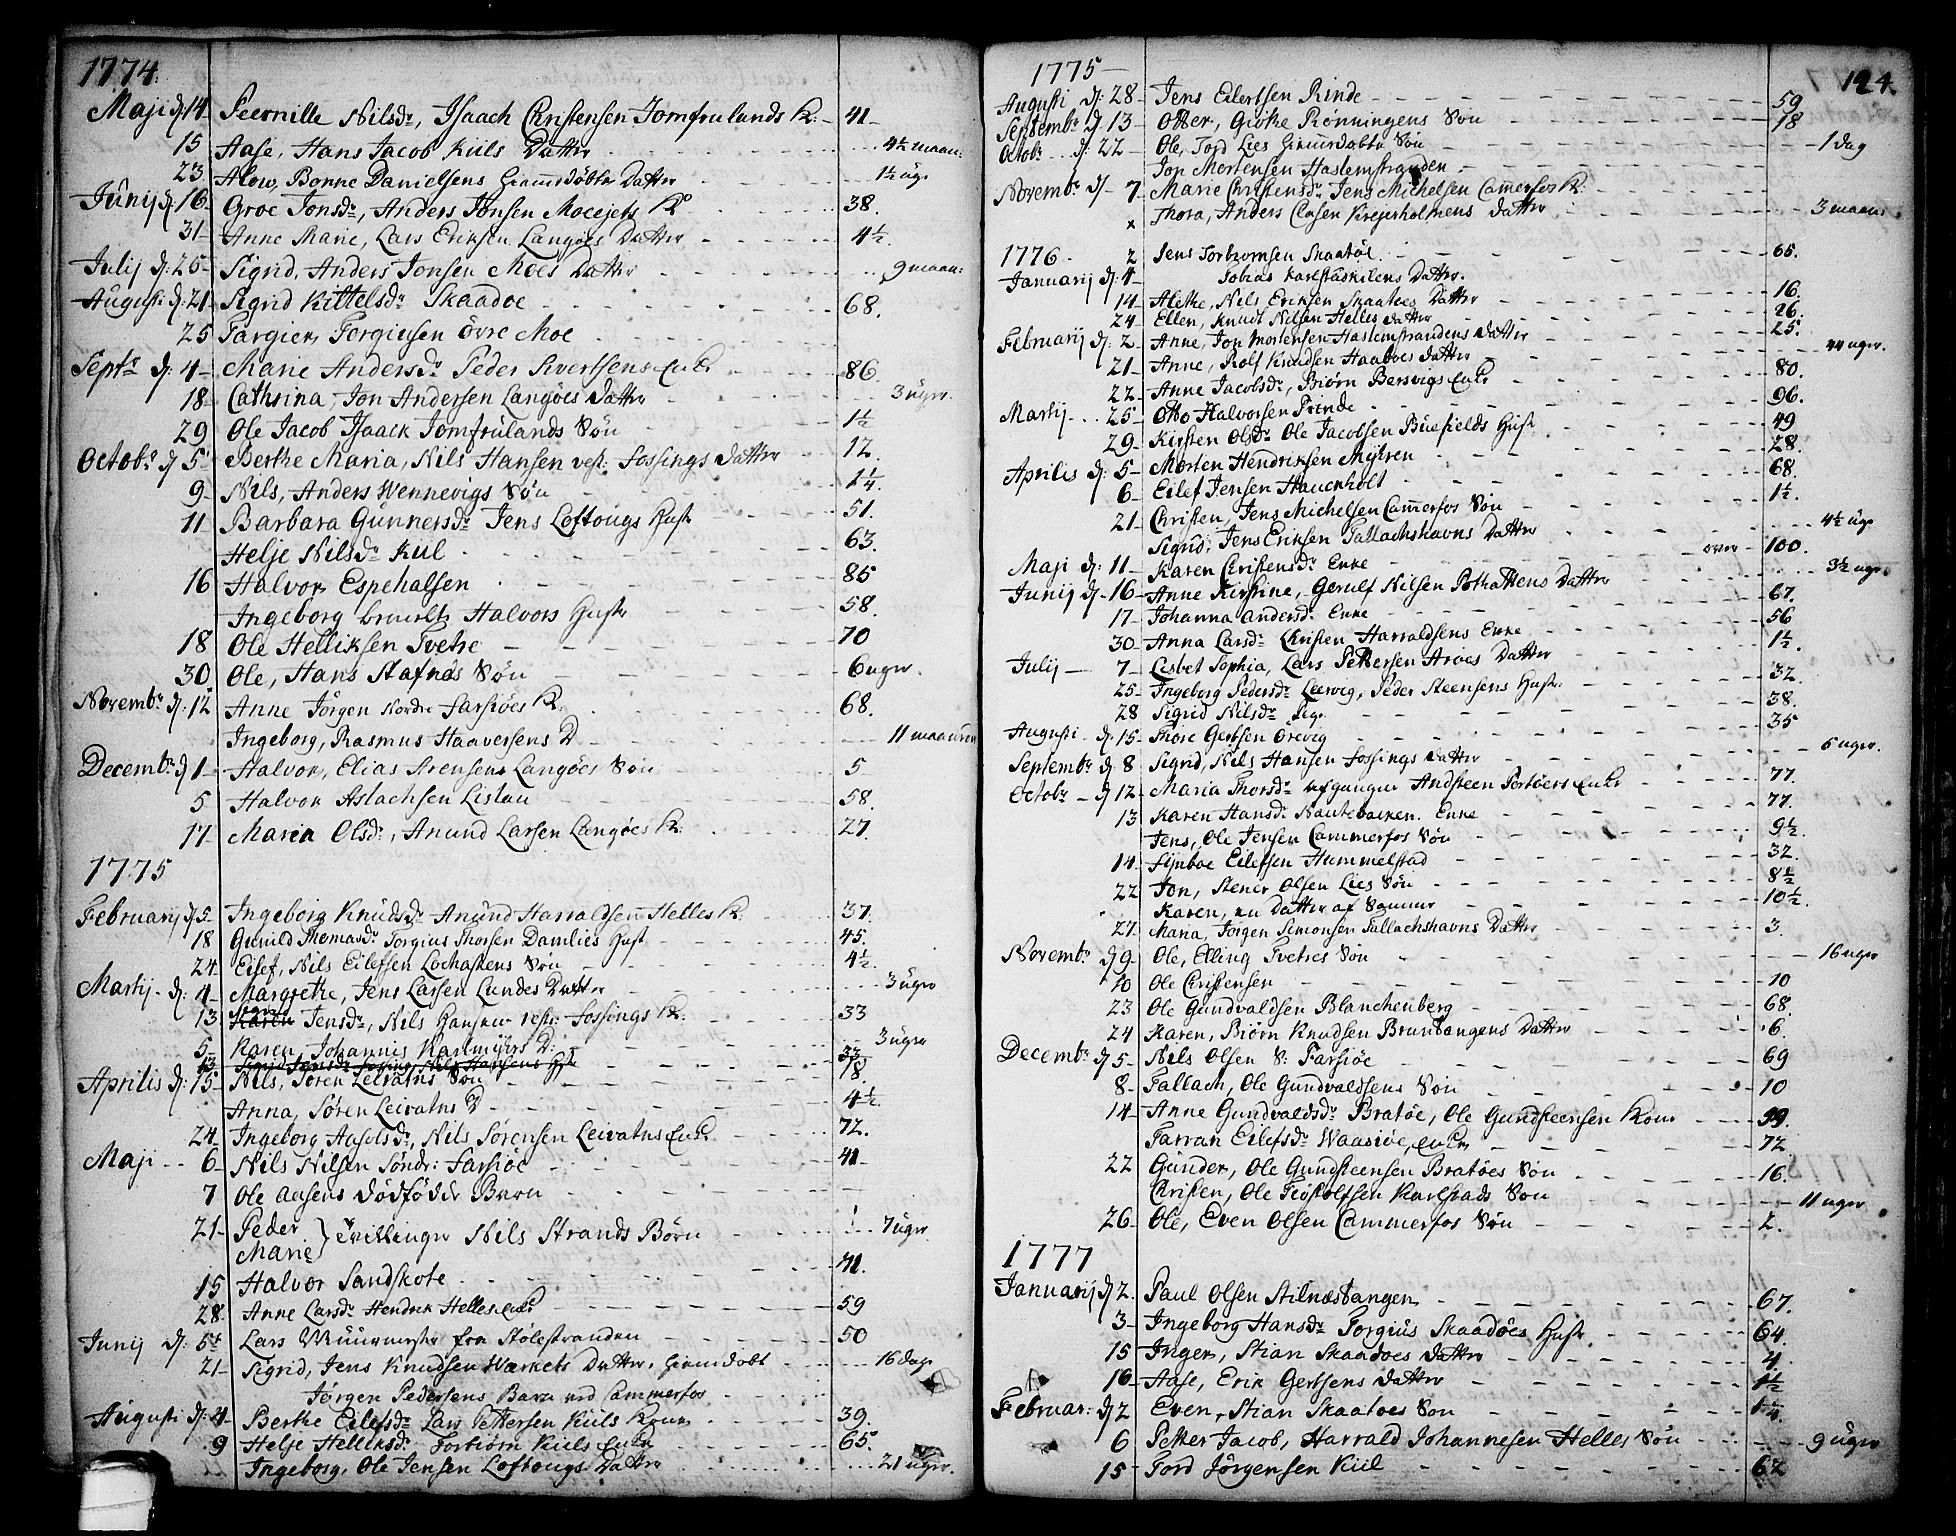 1774.
Maji d. 14 Peernille Nilsdr, Isaach Christensen Jomfrulands K: 41
15 Aase, Hans Jacob Kiils Datter 4½ maan:
23 Alow, Bonne Danielsens Datter 1½ uge
Junij d. 16 Groe Jonsdr, Anders Jonsen Mocejets K 38.
31 Anne Marie, Lars Eriksen Langöes Datter 4½.
Julij d: 25 Sigrid, Anders Jonsen Moes Datter 9 maan:
Augusti d: 21 Sigrid Kittelsdr Skaadoe 68.
25 Targier Torgiusen övre Moe
Septr d: 4 Marie Andersdr Peder Sivertsens Enke 86.
18 Cathrina, Jon Andersen Langöes Datter 3 uger.
29 Ole Jacob Isaack Jomfrulands Sön 1½
Octobr d 5 Berthe Maria, Nils Hansen vest: Fossings Datter 12.
9 Nils, Anders Wennevigs Sön 1¼.
11 Barbara Gunnersdr Jens Loftougs Hust 51.
Helje Nilsdr Kiil 63.
16 Halvor Espehalsen 85
Ingeborg Halvors Hustr 58.
18 Ole Helliksen Tvetne 70
30 Ole, Hans Stafnæs Sön 6 uger.
Novembr d: 12 Anne Jörgen Nordre Farsiöes K. 68.
Ingeborg, Rasmus Haaversens D 11 maan
Decembr d 1 Halvor, Elias Arensens Langöes Sön 5
5 Halvor Aslachsen Listau 58.
17 Maria Olsdr, Anund Larsen Langöes K: 27.
1775
Februarij d 5 Ingeborg Knudsdr Anund Harraldsen Helles K. 37.
18 Gunild Thomasdr Torgius Thorsen Damlies Hust 45.
24 Eilef, Nils Eilefsen Lochastens Sön 4½
Martij d: 4 Margrethe, Jens Larsen Lundes Datter 3 uger
13 Sigrid Jensdr, Nils Hansen vest: Fossings K. 33
5 Karen, Johannis Karlmyhrs D: 3 uger
Aprilis d: 15 Nils, Sören Leivatns Sön 18.
Anna, Sören Leivatns D 4½.
24 Ingeborg Aasoldr, Nils Sörensen Leivatns Enke 72.
Maji 6 Nils Nilsen Söndr: Farsiöe 41
7 Ole Aasens dödfödde Barn
21 Peder
Marie } Tvillinger Nils Strands Börn 7 uger
15 Halvor Sandskote 41.
28 Anne Larsdr Hendrik Helles Enke 59
Junij d: 5 Lars Muurmester fra Stölestranden 50
21 Sigrid, Jens Knudsen Værkets Datter, 16 dage
Jörgen Pedersens Barn ved Cammerfos
Augusti d: 4 Berthe Eilefsdr Lars Pettersen Kiils Kone 39.
9 Helje Helliksdr Torbiörn Kiels Enke 65.
Ingeborg, Ole Jensen Loftougs Datter 21 uger.
124.
1775
Augusti d: 28 Jens Eilertsen Rinde 59
Septembr d. 13 Otter, Giöthe Rönningens Sön 18
Octobr d: 22 Ole, Tord Lies Sön 1 dag
Jon Mortensen Haslemstranden
Novembr d 7 Marie Christensdr Jens Michelsen Camerfos K:
x Thora, Anders Clasen Krejerholmens Datter 3 maan:
1776 2 Jens Torbiornsen Skaatöe 65.
Januarij d: 4 Tobias Karlstaskilens Datter.
14 Alethe, Nils Eriksen Skaatoes Datter 16.
24 Ellen, Knudt Nilsen Helles Datter 26.
Februarij d: 2 Anne, Jon Mortensen Haslemstrandens Datter 25.
21 Anne, Rolf Knudsen Haatoes Datter 44 uger.
22 Anne Jacobsdr, Biörn Bersvigs Enke 80.
Martij 25 Otto Halvorsen Trinde 96.
29 Kirsten Olsdr Ole Jacobsen Buefields Hust 49
Aprilis d: 5 Morten Hendriksen Myhren 28.
6 Eilef Jensen Haukenholt 68.
21 Christen, Jens Michelsen Camerfos Sön 1½.
Sigrid, Jens Eriksen Tallachshavns Datter 4½ uge
Maji d: 11 Karen Christensdr Enke over 100.
Junij d. 16 Anne Kirstine, Gerulf Nilsen Pothattens Datter 3½ uger
17 Johanna Andersdr Enke 67.
30 Anna Larsdr Christen Harraldsens Enke 56
Julij 7 Lisbet Sophia, Lars Pettersen Aröes Datter 1½.
25 Ingeborg Pedersdr Leerveg, Peder Steensens Hust: 32.
28 Sigrid Nilsdr 38.
Augusti d. 15 Thore Gertsen Örevig 35
Septembr d 8 Sigrid, Nils Hansen Fossings Datter 6 uger.
Octobr d 12 Maria Thorsdr afgangne Andsteen Portöers Enke 77.
13 Karen Hansdr Nautebacken. Enke 77.
Jens, Ole Jensen Cammerfos Sön 9½.
14 Synboe Eilefsen Hummelstad 32.
22 Jon, Stener Olsen Lies Sön 8½
Karen, en Datter af Samme 10½.
27 Maria, Jörgen Simonsen Tallachshavns Datter 3.
Novembr d 9 Ole, Elling Tvetnes Sön 16 uger
10 Ole Christensen 10
23 Ole Gundvaldsen Blanchenberg 68
24 Karen, Biörn Knudsen Bruntangens Datter 6.
Decembr d 5 Nils Olsen S: Farsiöe 69
8 Tallach, Ole Gundvaldsens Sön 10
14 Anne Gundvaldsdr Bratöe, Ole Gundsteensen Kone
Tarran Eilefsdr Waasiöe, Enke 72
22 Gunder, Ole Gundsteensen Bratöes Sön 16.
Christen, Ole Tiöstolfsen Karlstads Sön 11 uger
26 Ole, Even Olsen Cammerfos Sön 2.
1777
Januarij d 2. Paul Olsen Stilnæstangen 67.
3 Ingeborg Hansdr Torgius Skaadöes Hustr 64.
15 Inger, Stian Skaadoes Datter 4.
16 Aase, Erik Gertsens Datter 1½
Februar: d 2 Even, Stian Skaatoes Sön 1¼.
6 Petter Jacob, Harrald Johannesen Helles Sön 9 uger
15 Tord Jörgensen Kiil 62